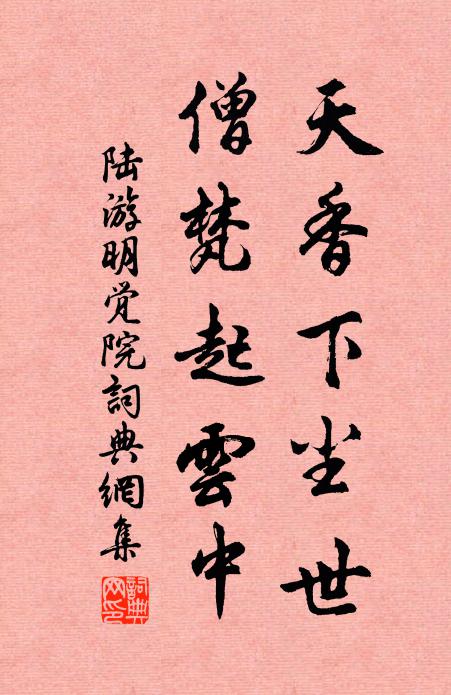 天香下尘世
僧梵起雲中
陆游明觉院詞典網集
詞典網印